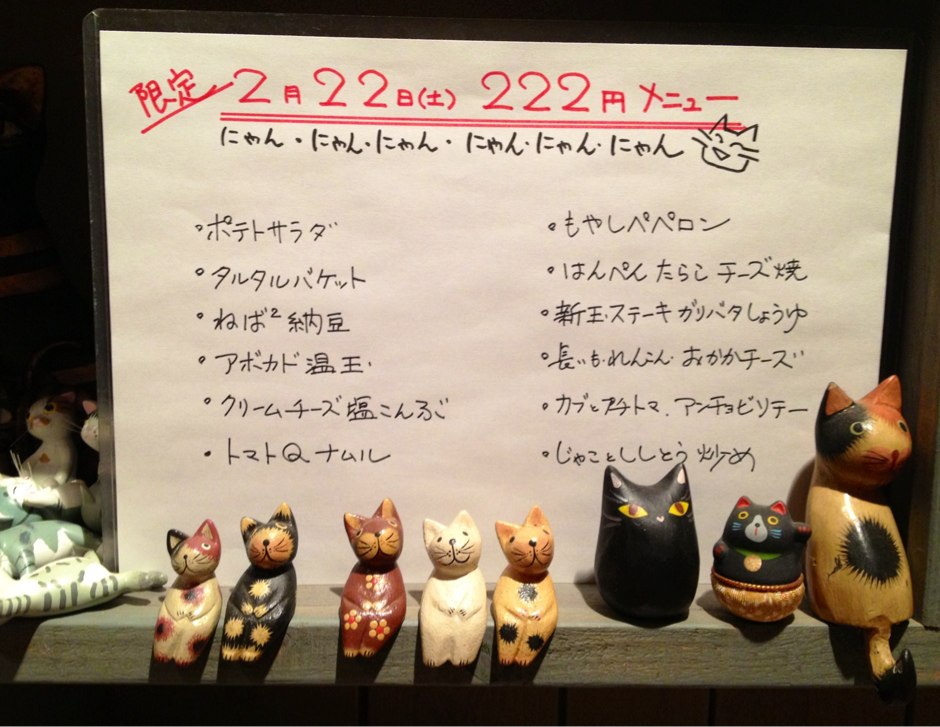 限定 2月22日(土) 222円 メニュー
にゃん・にゃん・にゃん・にゃん・にゃん・にゃん
・ポテトサラダ
・タルタルバケット
・ねば²納豆
・アボカド温玉
・クリームチーズ塩こんぶ
・トマトQナムル
・もやしペペロン
・はんぺんたらこチーズ焼
・新玉ステーキガリバタしょうゆ
・長いも・れんこん おかかチーズ
・カブとプチトマ、アンチョビソテー
・じゃことししとう炒め